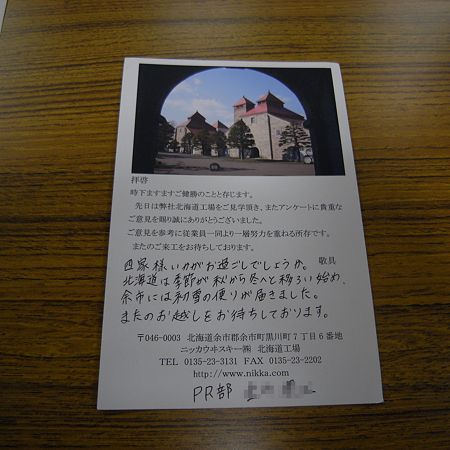 拝啓
時下ますますご健勝のことと存じます。
先日は弊社北海道工場をご見学頂き、またアンケートに貴重な
ご意見を賜り誠にありがとうございました。
ご意見を参考に従業員一同より一層努力を重ねる所存です。
またのご来工をお待ちしております。
敬具
四家様いかがお過ごしでしょうか。
北海道は季節が秋から冬へと移ろい始め、
余市には初雪の便りが届きました。
またのお越しをお待ちしております。
〒046-0003 北海道余市郡余市町黒川町7丁目6番地
ニッカウヰスキー㈱ 北海道工場
TEL 0135-23-3131 FAX 0135-23-2202
http://www.nikka.com/
PR部